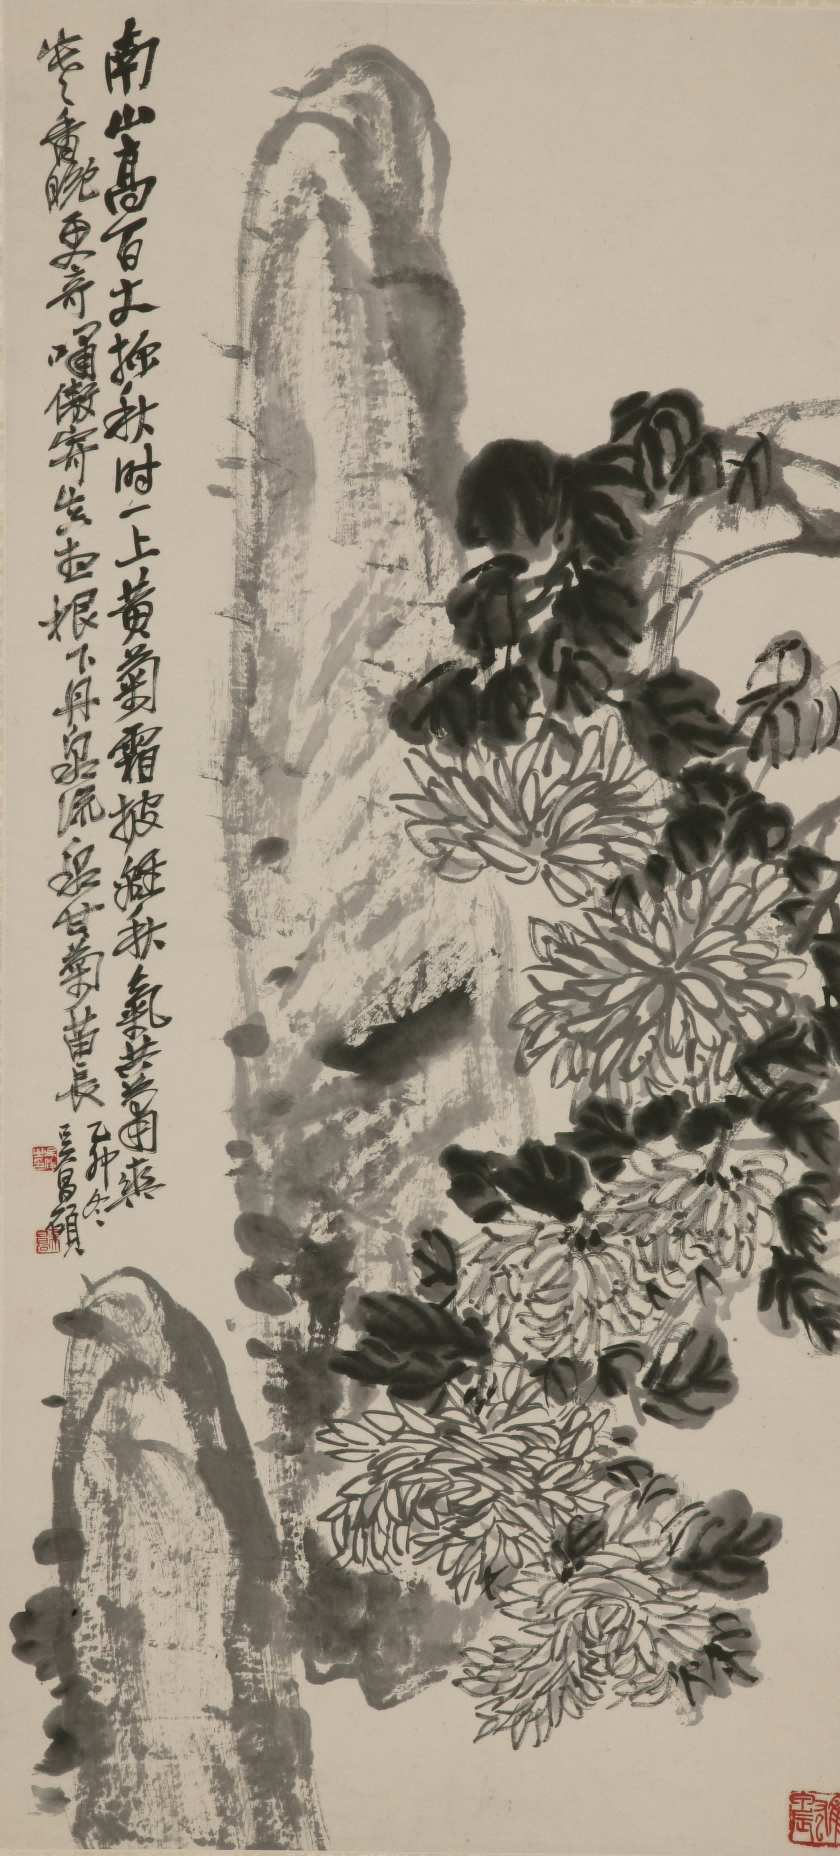 南山高百丈極秋時一上黃菊霜披離秋氣共蕭爽
蘂香晚更奇嘯傲寄真想根下丹泉流飲甘菊苗長
乙卯冬
吳昌碩